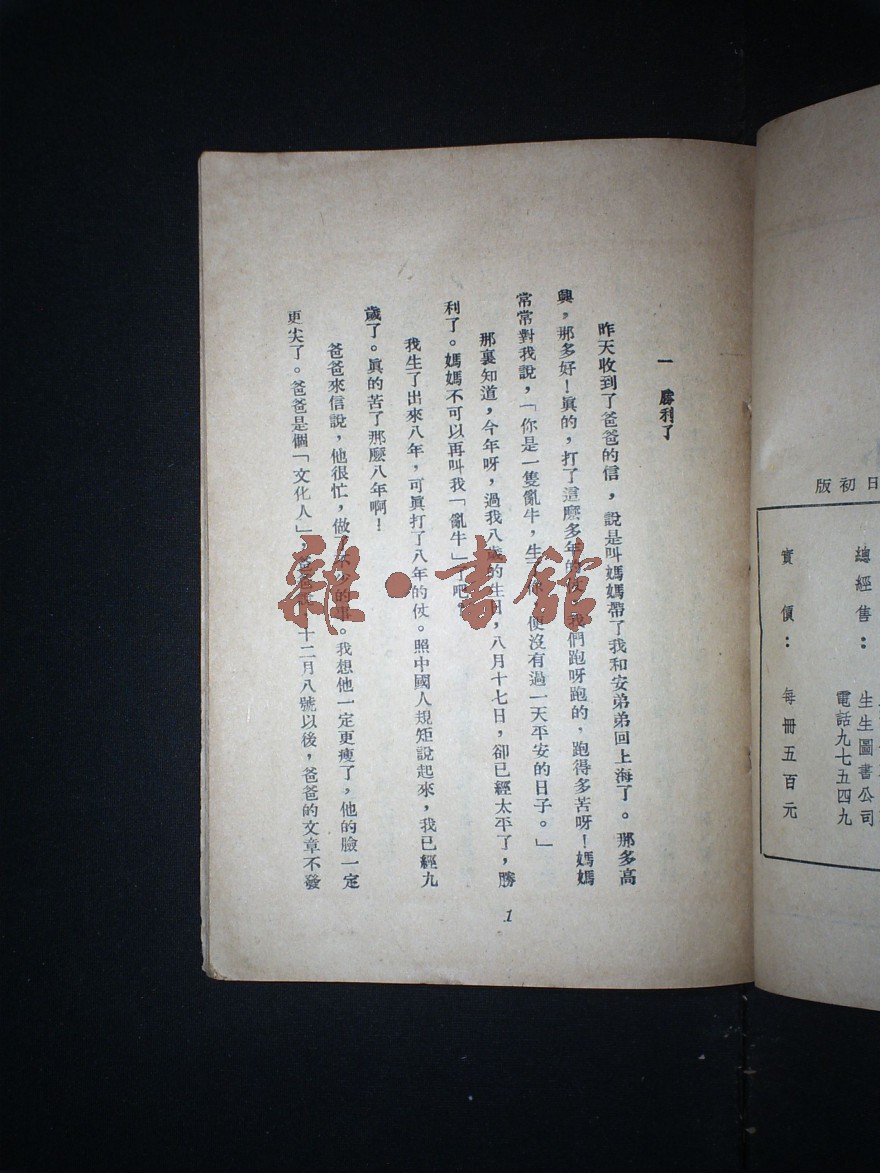 日初版
總經售：
生生圖書公司
電話九七五四九
實價：每冊五百元
一 勝利了
昨天收到了爸爸的信，說是叫媽媽帶了我和安弟弟回上海了。那多高
興，那多好！眞的，打了這麼多年的仗，我們跑呀跑的，跑得多苦呀！媽媽
常常對我說，「你是一隻亂牛，生了你，便沒有過一天平安的日子。」
那裏知道，今年呀，過我八歲的生日，八月十七日，卻已經太平了，勝
利了。媽媽不可以再叫我「亂牛」了吧。
我生了出來八年，可眞打了八年的仗。照中國人規矩說起來，我已經九
歲了。眞的苦了那麼八年啊！
爸爸來信說，他很忙，做了不少的事。我想他一定更瘦了，他的臉一定
更尖了。爸爸是個「文化人」，爸爸說，十二月八號以後，爸爸的文章不發
1
雜·書館